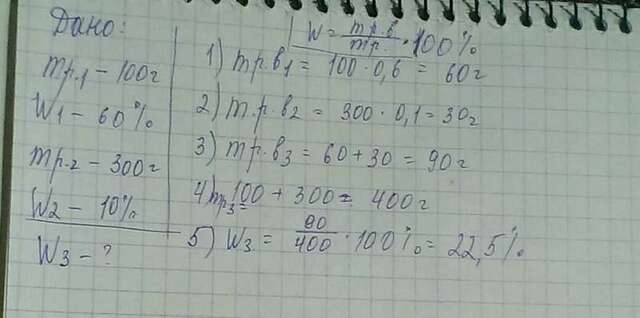 Дано:
mр.1 - 100г
W1 - 60%
mр.2 - 300г
W2 - 10%
W3 - ?
W = mр.в / mр. · 100%
1) mр.в1 = 100 · 0,6 = 60г
2) m.р.в2 = 300 · 0,1 = 30г
3) mр.в3 = 60 + 30 = 90г
4) mр3 = 100 + 300 = 400г
5) W3 = 90/400 · 100% = 22,5%